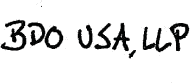 BDO USA, LLP